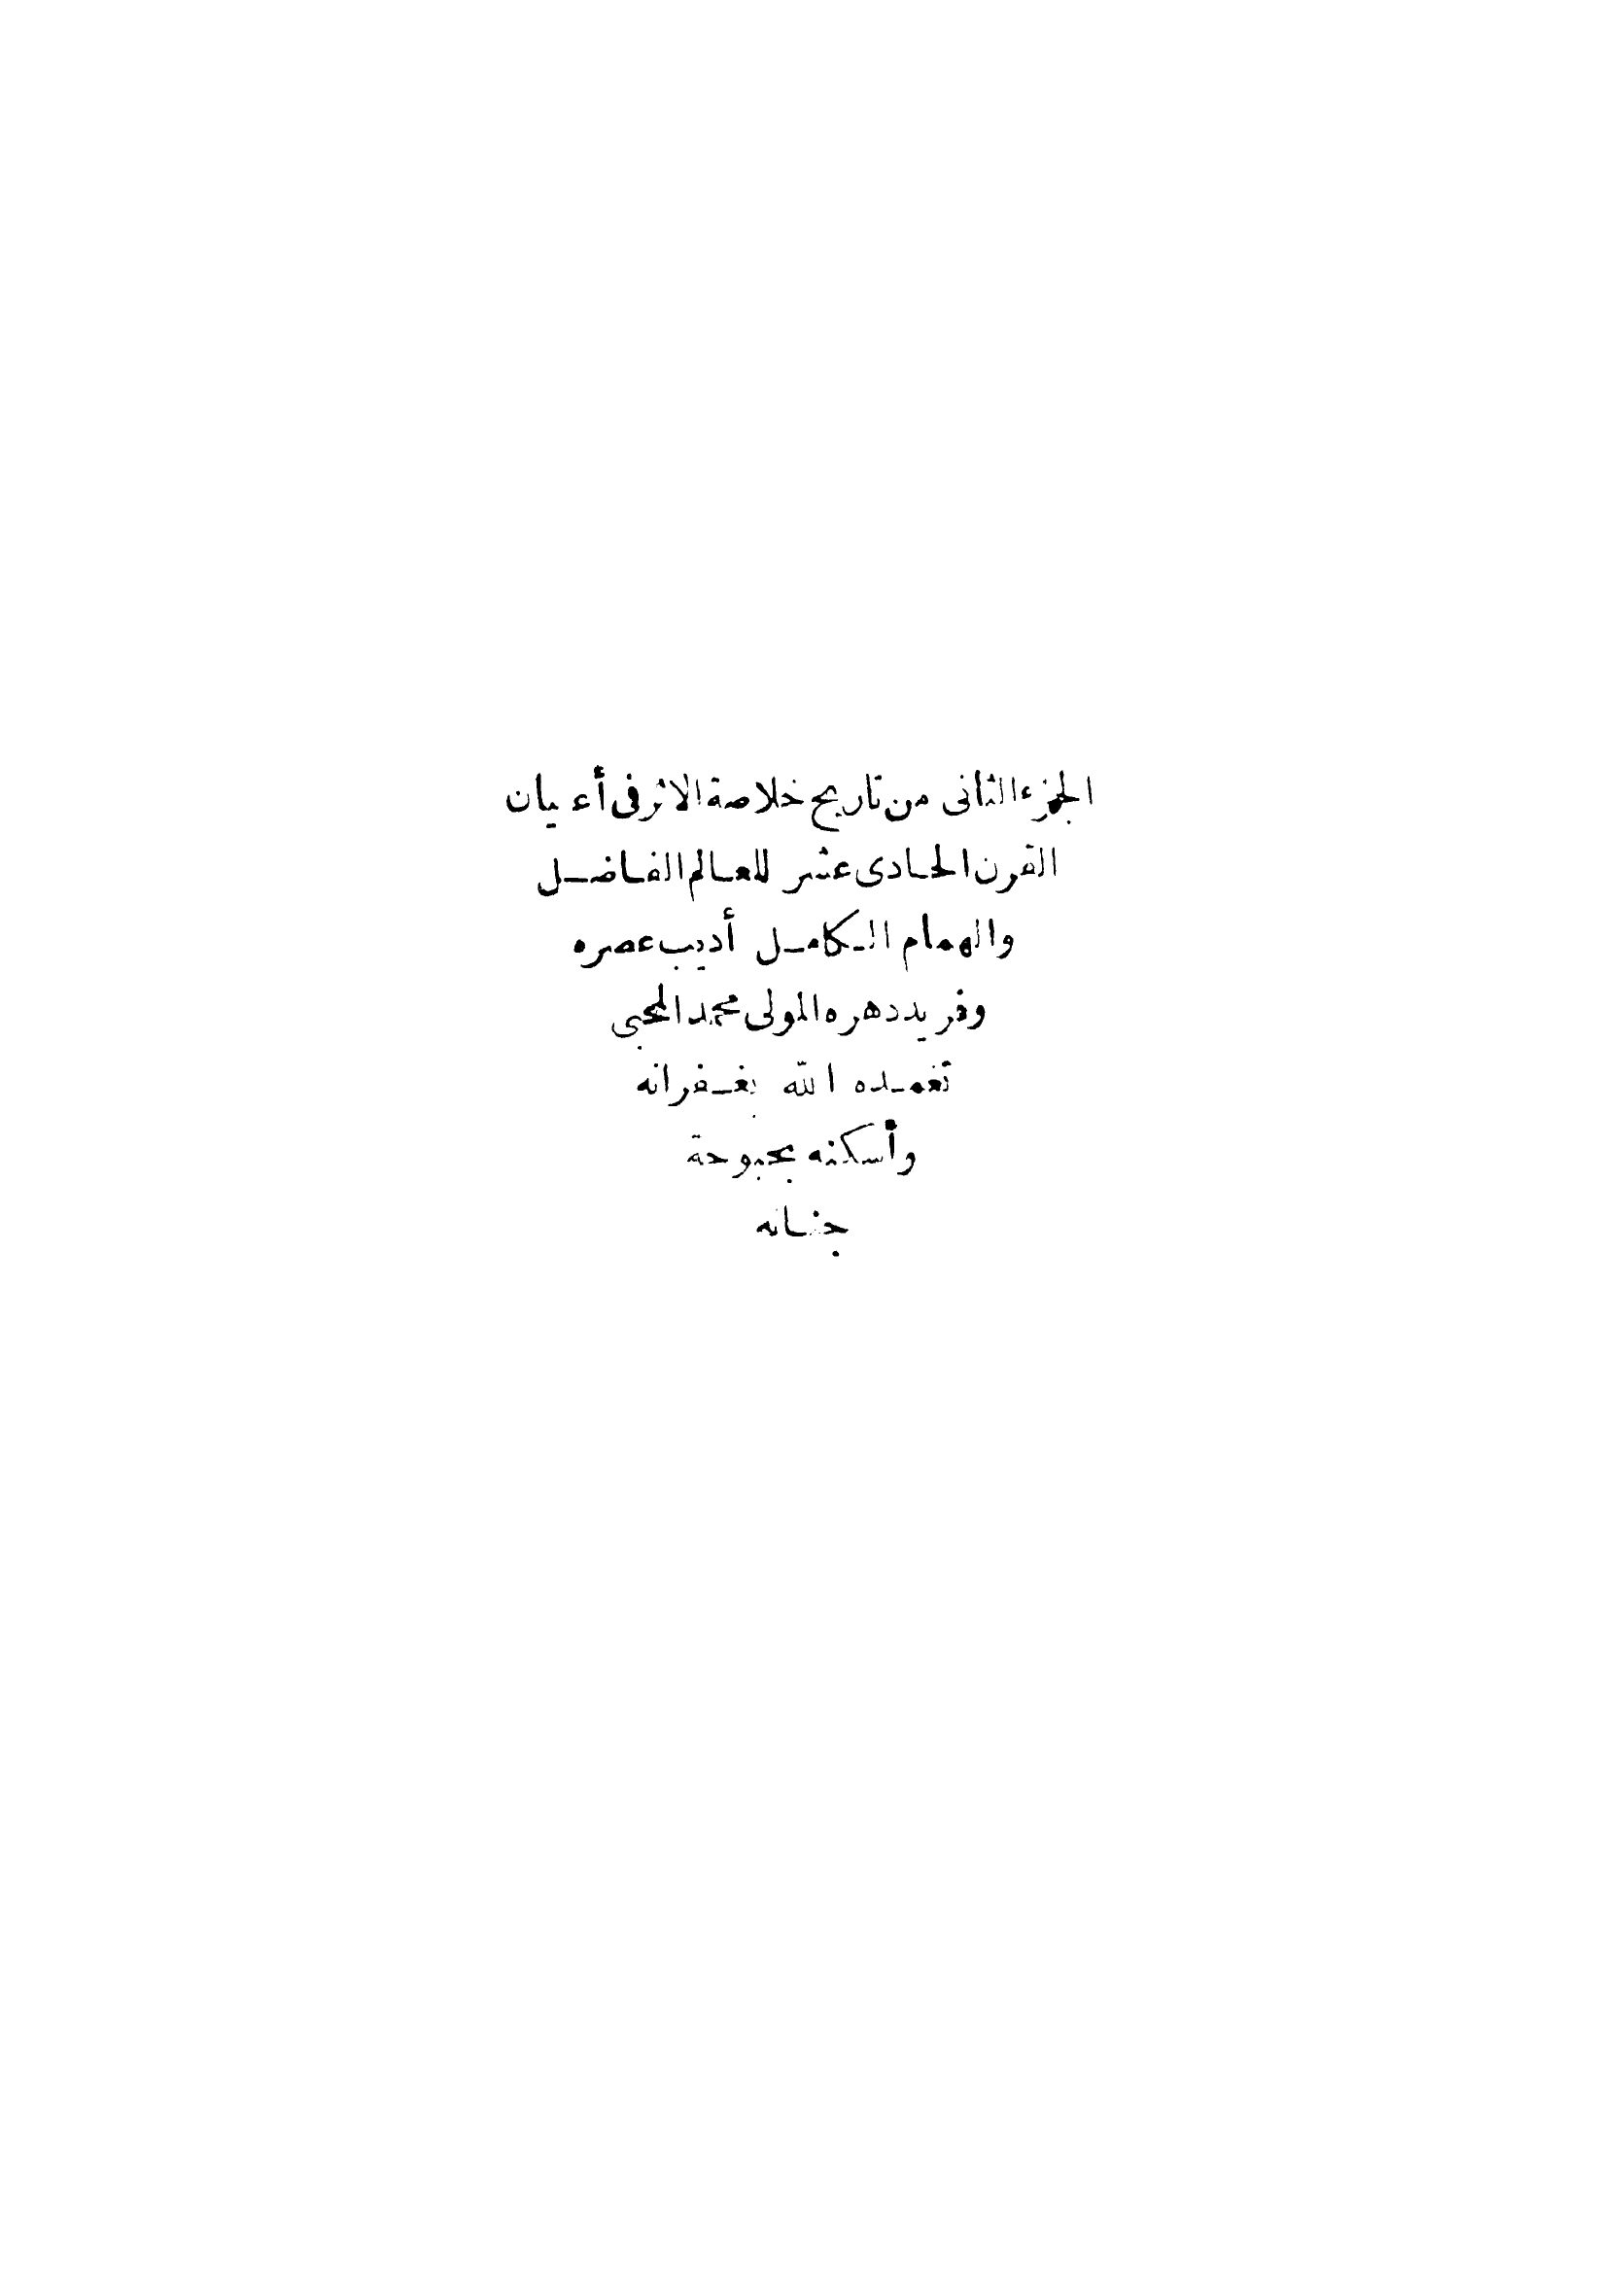 الجزء الثانى من تاريخ خلاصة الاثر فى أعيان
القرن الحادى عشر للعالم الفاضل
والهمام الكامل أديب عصره
وفريد دهره المولى محمد المحبى
تغمده الله بغفرانه
وأسكنه بحبوحة
جنانه